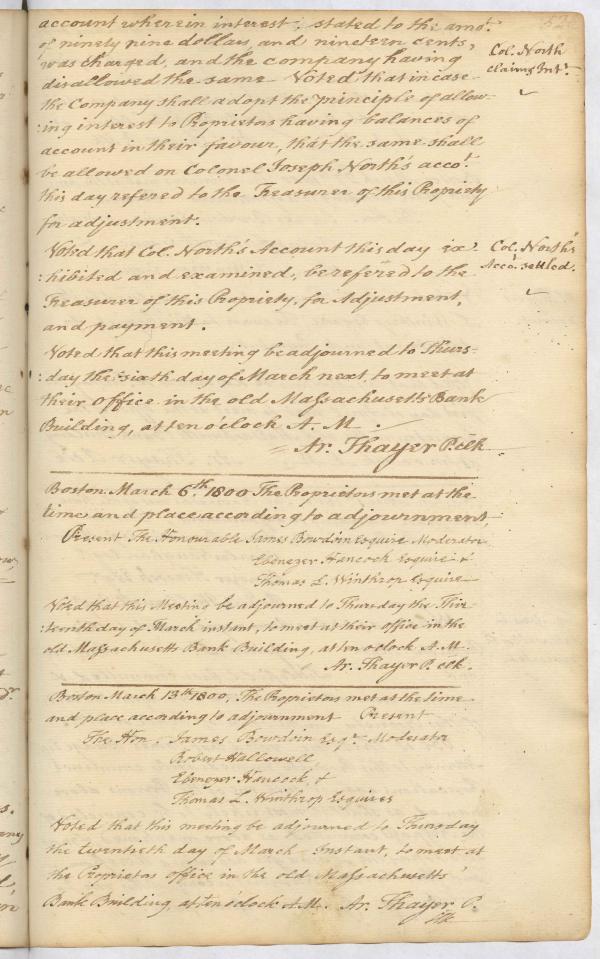 account wherein interest, stated to the amot.
of ninety nine dollars, and nineteen cents,
was charged, and the company having
disallowed the same Voted that in case
the Company shall adopt the principle of allow-
:ing interest to Proprietors having balances of
account in their favour, that the same shall
be allowed on Colonel Joseph North's accot.
this day refered to the Treasurer of this Propriety
for adjustment.
Col. North
claims Intt.
Voted that Col. North's Account this day ex:
:hibited and examined, be refered to the
Treasurer of this Propriety, for Adjustment,
and payment.
Col. North's
Acco. settled.
Voted that this meeting be adjourned to Thurs-
:day the sixth day of March next, to meet at
their office in the old Massachusetts Bank
Building, at ten o'clock A. M.
Ar. Thayer P. clk
Boston March 6.th 1800 The Proprietors met at the
time and place according to adjournment,
Present The Honourable James Bowdoin Esquire Moderator
Ebenezer Hancock Esquire &
Thomas L. Winthrop Esquire
Voted that this Meeting be adjourned to Thursday the Thir
:teenth day of March instant, to meet at their office in the
old Massachusetts Bank Building, at ten o clock A. M.
Ar. Thayer P. clk.
Boston March 13th 1800, The Proprietors met at the time
and place according to adjournment Present
The Hon. James Bowdoin Esqr. Moderator
Robert Hallowell,
Ebenezer Hancock, &
Thomas L. Winthrop Esquires
Voted that this meeting be adjourned to Thursday
the twentieth day of March Instant, to meet at
the Proprietors office in the old Massachusetts
Bank Building, at ten o'clock A. M. Ar. Thayer P.
clk